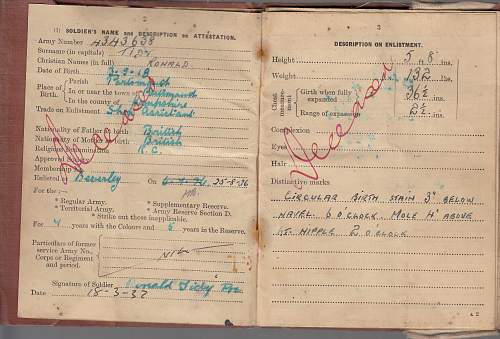 2
(1) SOLDIER'S NAME and DESCRIPTION on ATTESTATION.
Army Number 4343638
Surname (in capitals)
Christian Names (in full) RONALD
Date of Birth
Place of Birth. Parish Portsmouth
In or near the town Portsmouth
In the county of Hampshire
Trade on Enlistment Shop Assistant
Nationality of Father at birth British
Nationality of Mother at birth British
Religious Denomination R.C.
Approved
Membership
Enlisted Beverley On 25-8-36
For the :-
* Regular Army. * Supplementary Reserve.
* Territorial Army. * Army Reserve Section D.
* Strike out those inapplicable.
For 7 years with the Colours and 5 years in the Reserve.
Particulars of former service Army No., Corps or Regiment and period. Nil
Signature of Soldier
Date 18-3-37
Deceased
3
DESCRIPTION ON ENLISTMENT.
Height 5 ft. 8 ins.
Weight 132 lbs.
Chest measurement Girth when fully expanded 36½ ins.
Range of expansion 2½ ins.
Complexion
Eyes
Hair
Distinctive marks
CIRCULAR BIRTH STAIN 3" BELOW
NAVEL 6 O'CLOCK. MOLE 4" ABOVE
NIPPLE 2 O'CLOCK
Deceased